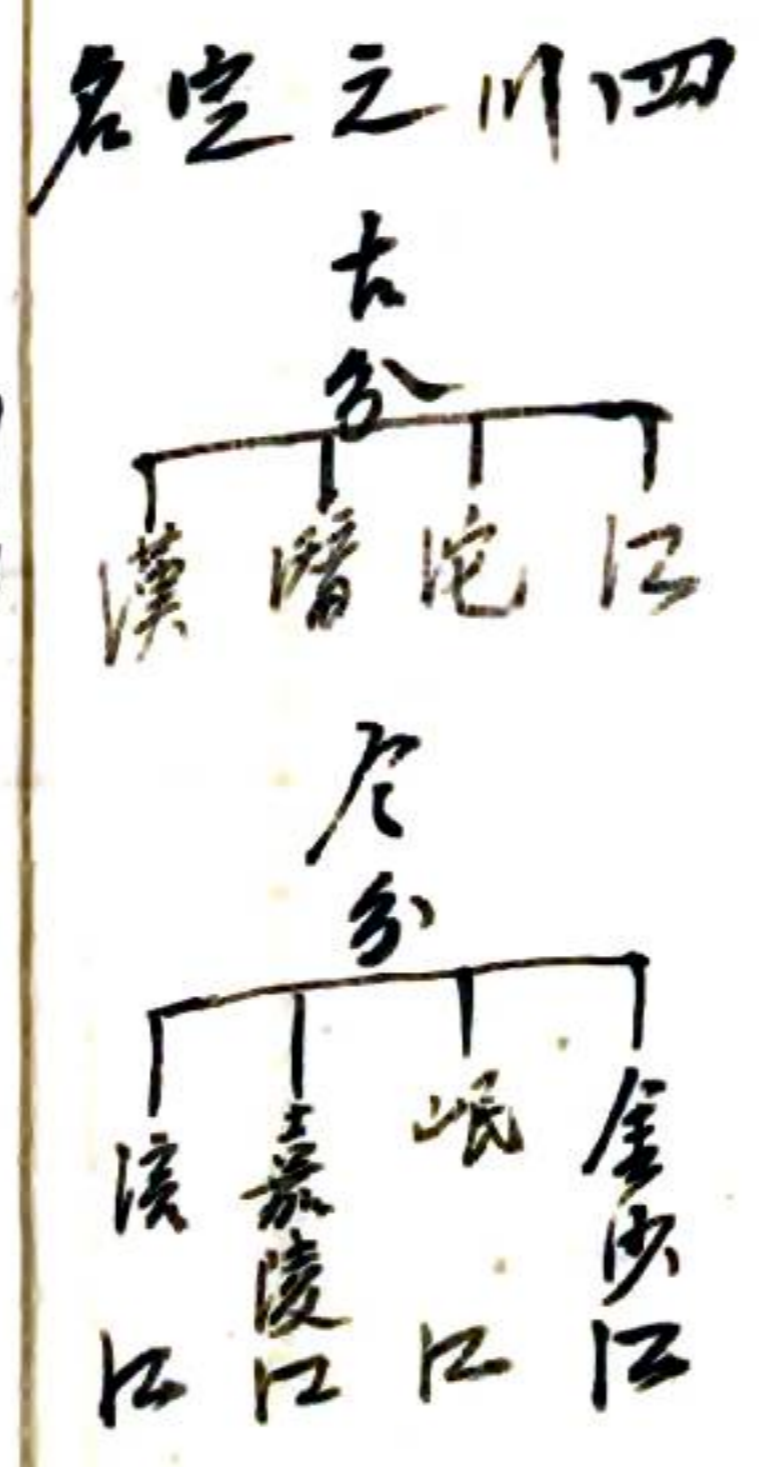 四川之定名
古
分
江
沱
潛
漢
今
分
金沙江
岷江
嘉陵江
江